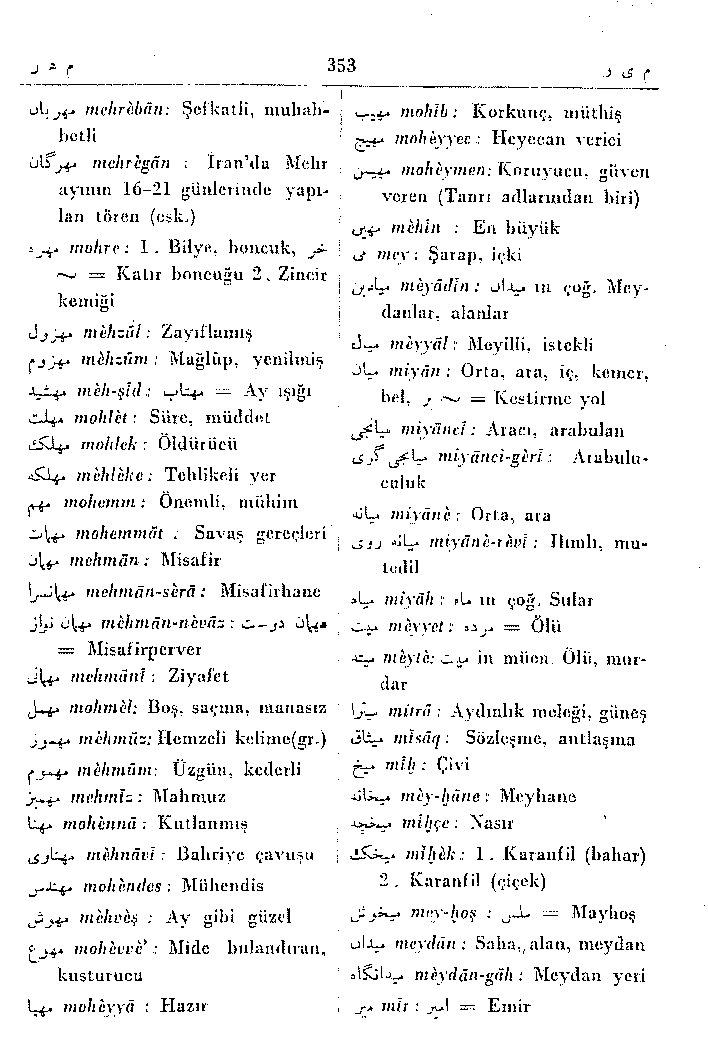 م ه ر 353 م ی ر
مهربان mehrèbān: Şefkatli, muhab-
betli
مهرگان mehrègān : İran'da Mehr
ayının 16-21 günlerinde yapı-
lan tören (esk.)
مهره mohre: 1. Bilye, boncuk, خر
~ = Katır boncuğu 2. Zincir
kemiği
مهزول mèhzūl: Zayıflamış
مهزوم mèhzūm: Mağlûp, yenilmiş
مهشید mèh-şīd: مهتاب = Ay ışığı
مهلت mohlèt: Süre, müddet
مهلک mohlek: Öldürücü
مهلکه mèhlèke: Tehlikeli yer
مهم mohemm: Önemli, mühim
مهمات mohemmāt : Savaş gereçleri
مهمان mehmān: Misafir
مهمانسرا mehmān-sèrā: Misafirhane
مهمان نواز mèhmān-nèvāz: مهمان دوست
= Misafirperver
مهمانی mehmānī: Ziyafet
مهمل mohmèl: Boş, saçma, manasız
مهموز mèhmūz: Hemzeli kelime(gr.)
مهموم mèhmūm: Üzgün, kederli
مهمیز mehmīz: Mahmuz
مهنا mohènnā: Kutlanmış
مهناوی mèhnāvī: Bahriye çavuşu
مهندس mohèndes: Mühendis
مهوش mèhvèş : Ay gibi güzel
مهوع mohèvve': Mide bulandıran,
kusturucu
مهیا mohèyyā : Hazır
مهیب mohīb: Korkunç, müthiş
مهیج mohèyyec: Heyecan verici
مهیمن mohèymen: Koruyucu, güven
veren (Tanrı adlarından biri)
مهین mèhīn : En büyük
می mey: Şarap, içki
میادین mèyādīn: میدان ın çoğ. Mey-
danlar, alanlar
میال mèyyāl: Meyilli, istekli
میان miyān: Orta, ara, iç, kemer,
bel, بر ~ = Kestirme yol
میانجی miyāncī: Aracı, arabulan
میانجی گری miyānci-gèrī: Arabulu-
culuk
میانه miyānè: Orta, ara
میانه روی miyānè-rèvī: Ilımlı, mu-
tedil
میاه miyāh: ماء ın çoğ. Sular
میت mèyyet: مرده = Ölü
میته mèytè: میت in müen. Ölü, mur-
dar
میترا mitrā: Aydınlık meleği, güneş
میثاق mīsāq: Sözleşme, antlaşma
میخ mīḫ: Çivi
میخانه mèy-ḫāne: Meyhane
میخچه mīḫçe: Nasır
میخک mīḫèk: 1. Karanfil (bahar)
2. Karanfil (çiçek)
میخوش mey-ḫoş : ملس = Mayhoş
میدان meydān: Saha, alan, meydan
میدانگاه mèydān-gāh: Meydan yeri
میر mīr: امیر = Emir